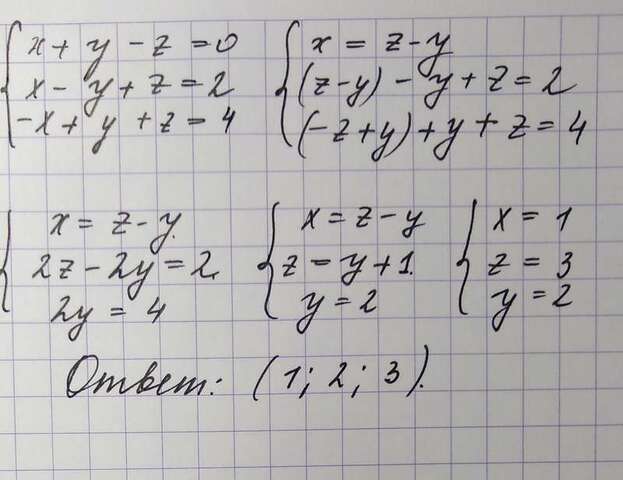 x + y - z = 0
x - y + z = 2
-x + y + z = 4
x = z - y
(z-y) - y + z = 2
(-z+y) + y + z = 4
x = z - y.
2z - 2y = 2.
2y = 4
x = z - y
z = y + 1.
y = 2
x = 1
z = 3
y = 2
Ответ: (1; 2; 3).